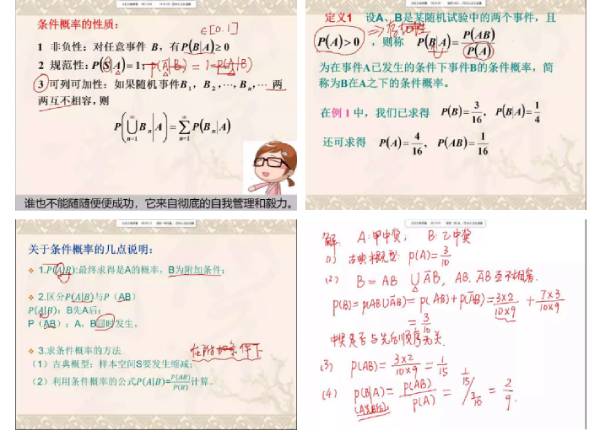 条件概率的性质:
∈[0.1]
1 非负性: 对任意事件 B, 有P(B|A)≥0
2 规范性: P(S|A)=1; P(A|B)=1-P(A|B)
3 可列可加性: 如果随机事件B₁, B₂,⋯,Bₙ,⋯ 两
两互不相容, 则
P(⋃Bₙ|A)=∑P(Bₙ|A)
n=1 ∞ n=1 ∞
谁也不能随随便便成功, 它来自彻底的自我管理和毅力。
定义1 设A、B是某随机试验中的两个事件, 且
P(A)>0, 则称 P(B|A)=P(AB)/P(A)
为在事件A已发生的条件下事件B的条件概率, 简
称为B在A之下的条件概率。
在例 1 中, 我们已求得 P(B)=3/16, P(B|A)=1/4
还可求得 P(A)=4/16, P(AB)=1/16
关于条件概率的几点说明:
1.P(A|B):最终求得是A的概率, B为附加条件;
2.区分P(A|B)与P(AB)
P(A|B): B先A后;
P(AB): A, B同时发生。
3.求条件概率的方法
在附加条件下
(1) 古典概型: 样本空间S要发生缩减;
(2) 利用条件概率的公式P(A|B)=P(AB)/P(B)计算。
解: A:甲中奖, B:乙中奖
(1) 古典概型: P(A)=3/10
(2) B = AB ∪ A̅B, AB, A̅B 互不相容.
P(B)=P(AB∪A̅B)=P(AB)+P(A̅B)=3×2/10×9 + 7×3/10×9
=3/10
中奖是否与先后顺序无关.
(3) P(AB)=3×2/10×9=1/15
(4) P(B|A)=P(AB)/P(A)=1/15/3/10=2/9.